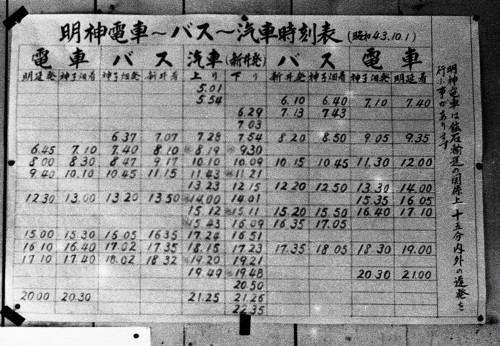 明神電車～バス～汽車時刻表 (昭和43.10.1)
電車 バス 汽車 (新井発) バス 電車
明延発 神子畑着 神子畑発 新井着 上り 下り 新井発 神子畑着 神子畑発 明延着
5.01
5.54 6.10 6.40 7.10 7.40
6.29 7.13 7.43
7.03
6.37 7.07 7.28 7.54 8.20 8.50 9.05 9.35
6.45 7.10 7.40 8.10 8.19 9.30
8.00 8.30 8.47 9.17 10.10 10.09 10.15 10.45 11.30 12.00
9.40 10.10 10.45 11.15 11.43 11.21
13.23 12.15 12.20 12.50 13.30 14.00
12.30 13.00 13.20 13.50 14.00 14.01 15.35 16.05
15.12 15.11 15.20 15.50 16.40 17.10
15.43 16.09 16.35 17.05
15.00 15.30 15.05 16.35 17.24 16.51
16.10 16.40 17.02 17.35 18.15 17.23 17.35 18.05 18.30 19.00
17.10 17.40 18.02 18.32 19.20 19.21
19.49 19.48 20.30 21.00
20.50
20.00 20.30 21.25 21.26
22.35
明神電車は鉱石輸送の関係上 十五分内外の遅発を
行ふ事があります